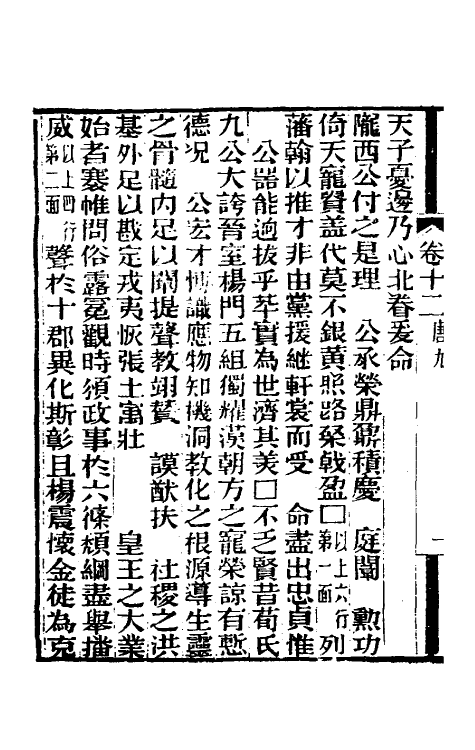 天子憂邊乃心北眷爰命
卷十二 唐
一
隴西公付之是理 公承榮鼎鼐積慶 庭闈 勲功
倚天寵賢盖代莫不銀黃照路棨戟盈□以上六行第一面列
藩翰以推才非由黨援継軒裳而受 命盡出忠貞惟
公器能逈拔乎萃實為世濟其美□不乏賢昔荀氏
九公大誇晉室楊門五組獨耀漢朝方之寵榮諒有慙
德况 公宏才博識應物知機洞教化之根源導生靈
之骨髓内足以闡提聲教翊賛 謨猷扶 社稷之洪
基外足以戡定戎夷恢張土㝢壯 皇王之大業
始者塞帷問俗露冕觀時湏政事扵六條頽綱盡舉播
威以上四行第二面聲扵十郡異化斯彰且楊震懷金徒為克